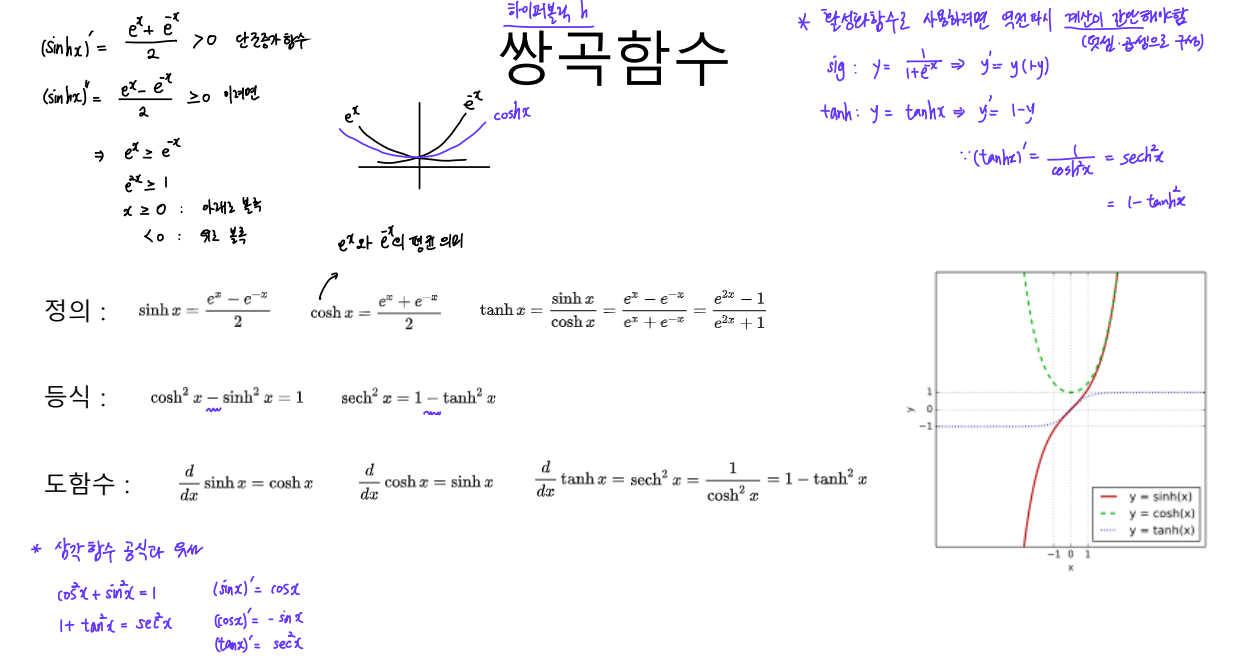 하이퍼볼릭 h
쌍곡함수
(sinhx)′ = (eˣ + e⁻ˣ)/2 > 0 단조증가함수
(sinhx)″ = (eˣ - e⁻ˣ)/2 ≥ 0 이려면
⇒ eˣ ≥ e⁻ˣ
e²ˣ ≥ 1
x ≥ 0 : 아래로 볼록
< 0 : 위로 볼록
eˣ e⁻ˣ coshx
eˣ와 e⁻ˣ의 평균 의미
* 활성화함수로 사용하려면 역전파시 계산이 간단해야함
(덧셈·곱셈으로 구성)
sig : y = 1/(1+e⁻ˣ) ⇒ y′ = y(1-y)
tanh : y = tanhx ⇒ y′ = 1-y
∵ (tanhx)′ = 1/cosh²x = sech²x
= 1 - tanh²x
정의 : sinh x = (eˣ − e⁻ˣ)/2 cosh x = (eˣ + e⁻ˣ)/2 tanh x = sinh x/cosh x = (eˣ − e⁻ˣ)/(eˣ + e⁻ˣ) = (e²ˣ − 1)/(e²ˣ + 1)
등식 : cosh² x − sinh² x = 1 sech² x = 1 − tanh² x
도함수 : d/dx sinh x = cosh x d/dx cosh x = sinh x d/dx tanh x = sech² x = 1/cosh² x = 1 − tanh² x
* 삼각함수 공식과 유사
cos²x + sin²x = 1 (sinx)′ = cosx
1 + tan²x = sec²x (cosx)′ = - sinx
(tanx)′ = sec²x
1
0
−1
y
y = sinh(x)
y = cosh(x)
y = tanh(x)
−1 0 1
x